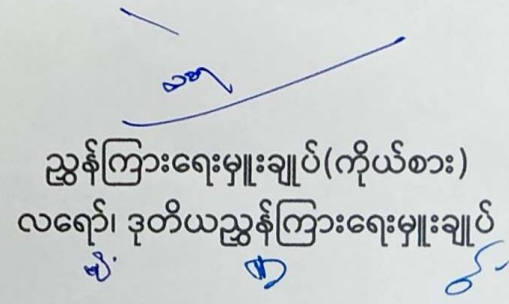 ညွှန်ကြားရေးမှူးချုပ်(ကိုယ်စား)
လရော်၊ ဒုတိယညွှန်ကြားရေးမှူးချုပ်